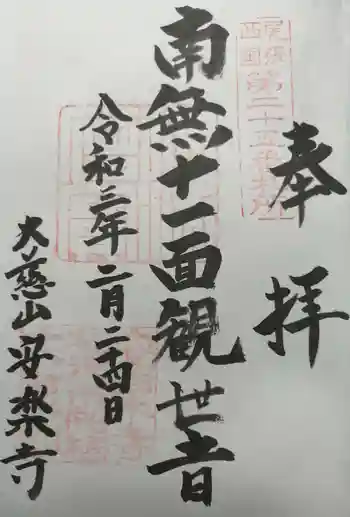 奉拝
尾張
西国
第二十五番札所
南無十一面観世音
令和三年二月二十四日
大慈山安楽寺